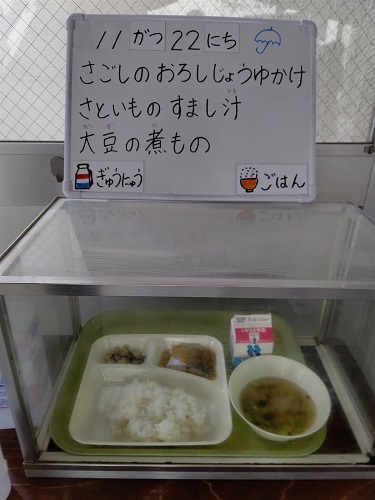 11がつ22にち
さごしのおろしじょうゆかけ
さといものすまし汁
大豆の煮もの
ぎゅうにゅう ごはん